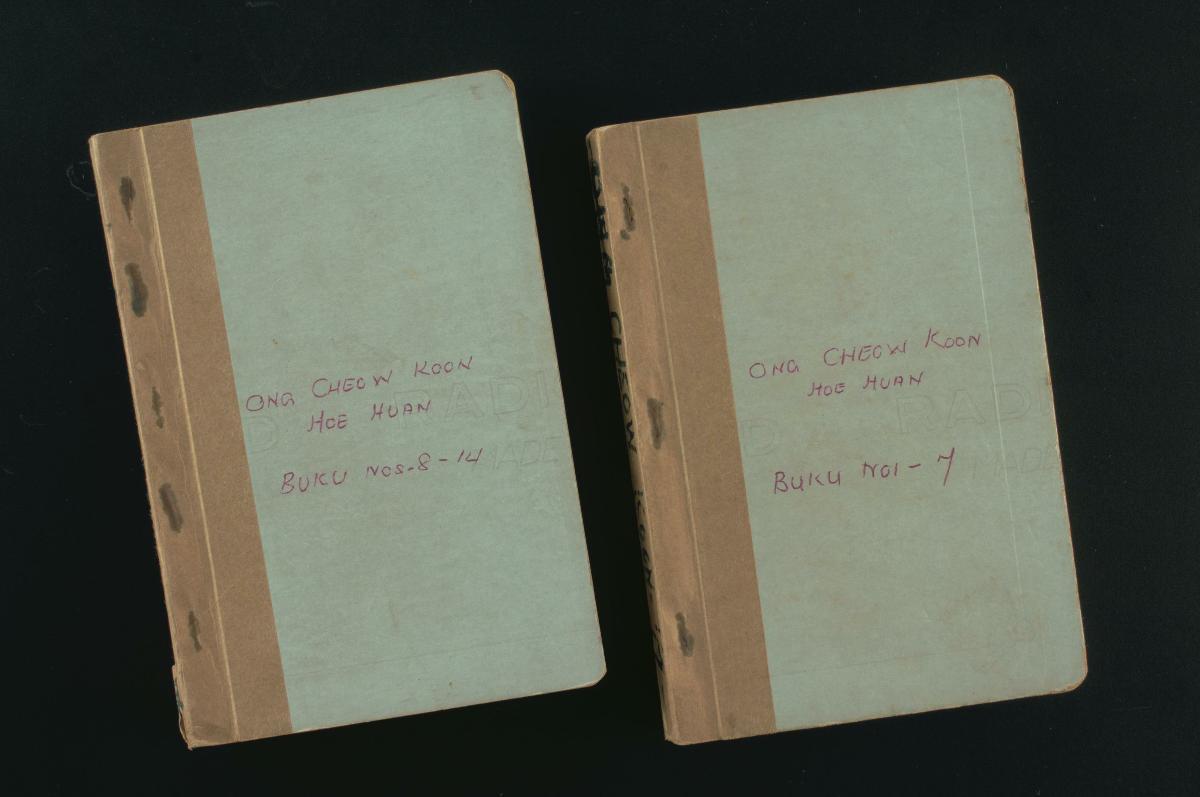 ONG CHEOW KOON
HOE HUAN
BUKU NOS-8-14
RADI
MADE
ONG CHEOW KOON
HOE HUAN
BUKU NO1-7
RADI
MADE
CHEOW KOON